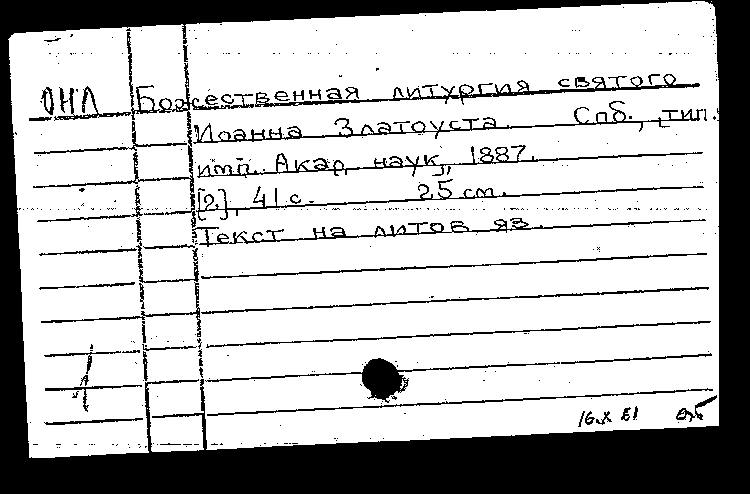 ОНЛ Божественная литургия святого
Иоанна Златоуста. Спб., тип.
имп. Акад. наук, 1887.
[2], 41 с. 25 см.
Текст на литов яз.
1
16.X 81